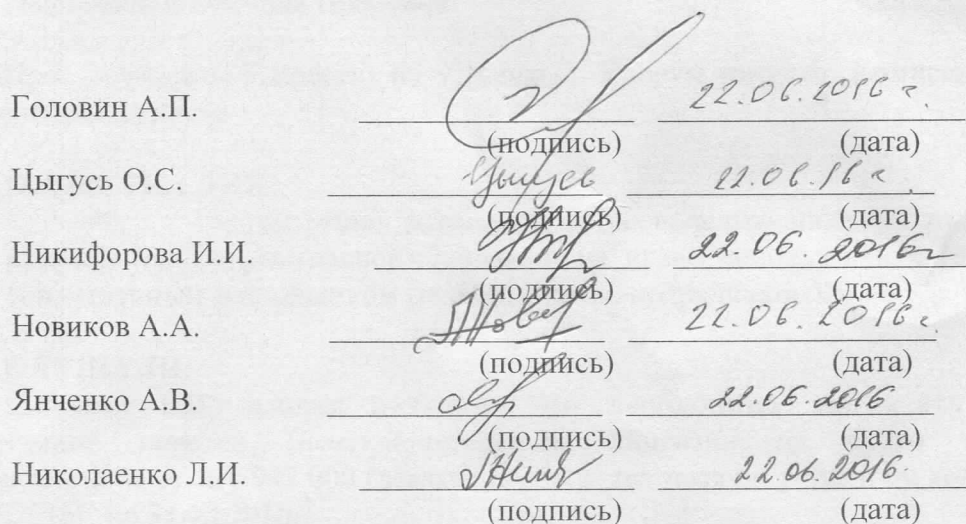 Головин А.П. 22.06.2016 г.
(подпись) (дата)
Цыгусь О.С. Цыгусь 22.06.16 г
(подпись) (дата)
Никифорова И.И. 22.06.2016г
(подпись) (дата)
Новиков А.А. 22.06.2016г.
(подпись) (дата)
Янченко А.В. 22.06.2016
(подпись) (дата)
Николаенко Л.И. 22.06.2016.
(подпись) (дата)